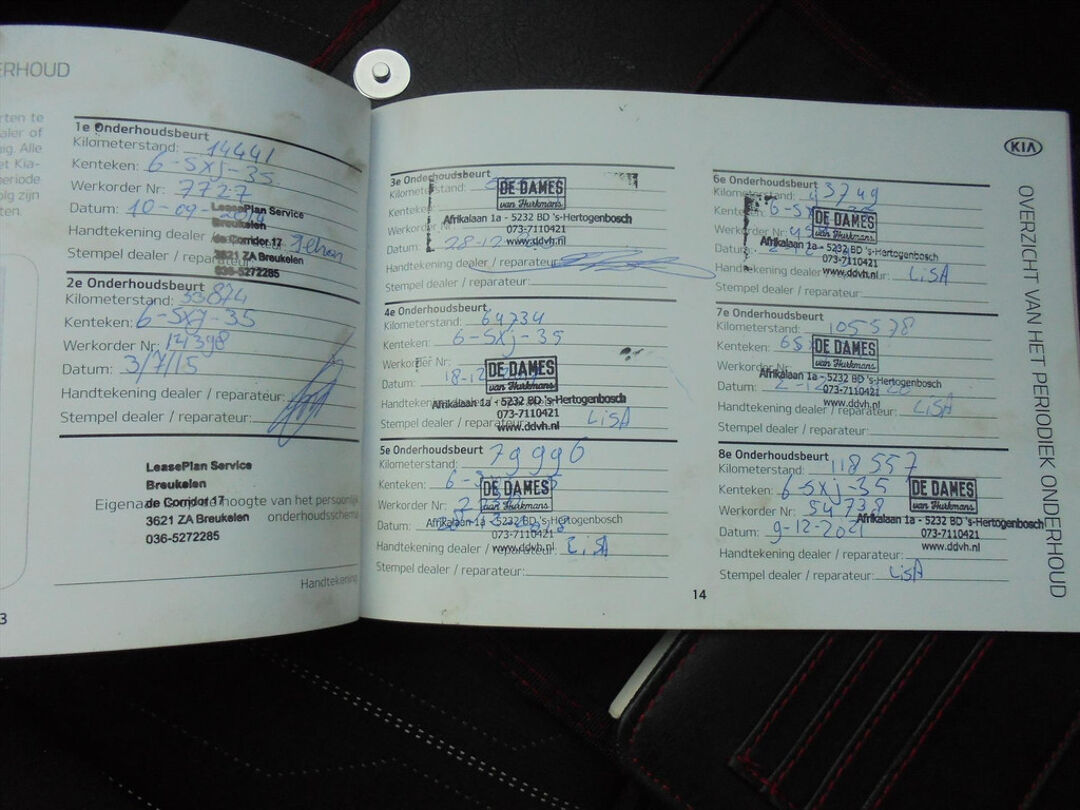 ERHOUD
rten te
aler of
ig. Alle
et Kia-
periode
olg zijn
ten.
1e Onderhoudsbeurt
Kilometerstand: 14441
Kenteken: 6-SXJ-35
Werkorder Nr: 7727
Datum: 10-09-
Handtekening dealer
Stempel dealer /
LeasePlan Service
Breukelen
de Corridor 17
3621 ZA Breukelen
036-5272285
2e Onderhoudsbeurt
Kilometerstand: 33874
Kenteken: 6-SXJ-35
Werkorder Nr: 14398
Datum: 3/7/15
Handtekening dealer / reparateur:
Stempel dealer / reparateur:
LeasePlan Service
Breukelen
de Corridor 17
3621 ZA Breukelen
036-5272285
hoogte van het
onderhoudsschema
Handtekening
3
3e Onderhoudsbeurt
Kilometerstand:
Kenteken
Werkorder Nr
Datum: 28-12
Handtekening dealer / reparateur:
Stempel dealer / reparateur:
DE DAMES
van Hurkmans
Afrikalaan 1a - 5232 BD 's-Hertogenbosch
073-7110421
www.ddvh.nl
4e Onderhoudsbeurt
Kilometerstand: 64734
Kenteken: 6-SXJ-35
Werkorder Nr:
Datum: 18-12
Stempel dealer / reparateur: LISA
DE DAMES
van Hurkmans
Afrikalaan 1a - 5232 BD 's-Hertogenbosch
073-7110421
www.ddvh.nl
5e Onderhoudsbeurt
Kilometerstand: 79996
Kenteken: 6-
Werkorder Nr:
Datum:
Handtekening dealer / reparateur: LISA
Stempel dealer / reparateur:
DE DAMES
van Hurkmans
Afrikalaan 1a - 5232 BD 's-Hertogenbosch
073-7110421
www.ddvh.nl
6e Onderhoudsbeurt
Kilometerstand: 93749
Kenteken: 6-SX
Werkorder Nr:
Datum:
Handtekening dealer / reparateur: LISA
Stempel dealer / reparateur:
DE DAMES
van Hurkmans
Afrikalaan 1a - 5232 BD 's-Hertogenbosch
073-7110421
www.ddvh.nl
7e Onderhoudsbeurt
Kilometerstand: 105578
Kenteken: 6S
Werkorder Nr:
Datum: 2-12
Handtekening dealer / reparateur: LISA
Stempel dealer / reparateur:
DE DAMES
van Hurkmans
Afrikalaan 1a - 5232 BD 's-Hertogenbosch
073-7110421
www.ddvh.nl
8e Onderhoudsbeurt
Kilometerstand: 118557
Kenteken: 6-SXJ-35
Werkorder Nr: 54738
Datum: 9-12-2021
Handtekening dealer / reparateur:
Stempel dealer / reparateur: LISA
DE DAMES
van Hurkmans
Afrikalaan 1a - 5232 BD 's-Hertogenbosch
073-7110421
www.ddvh.nl
14
KIA
OVERZICHT VAN HET PERIODIEK ONDERHOUD